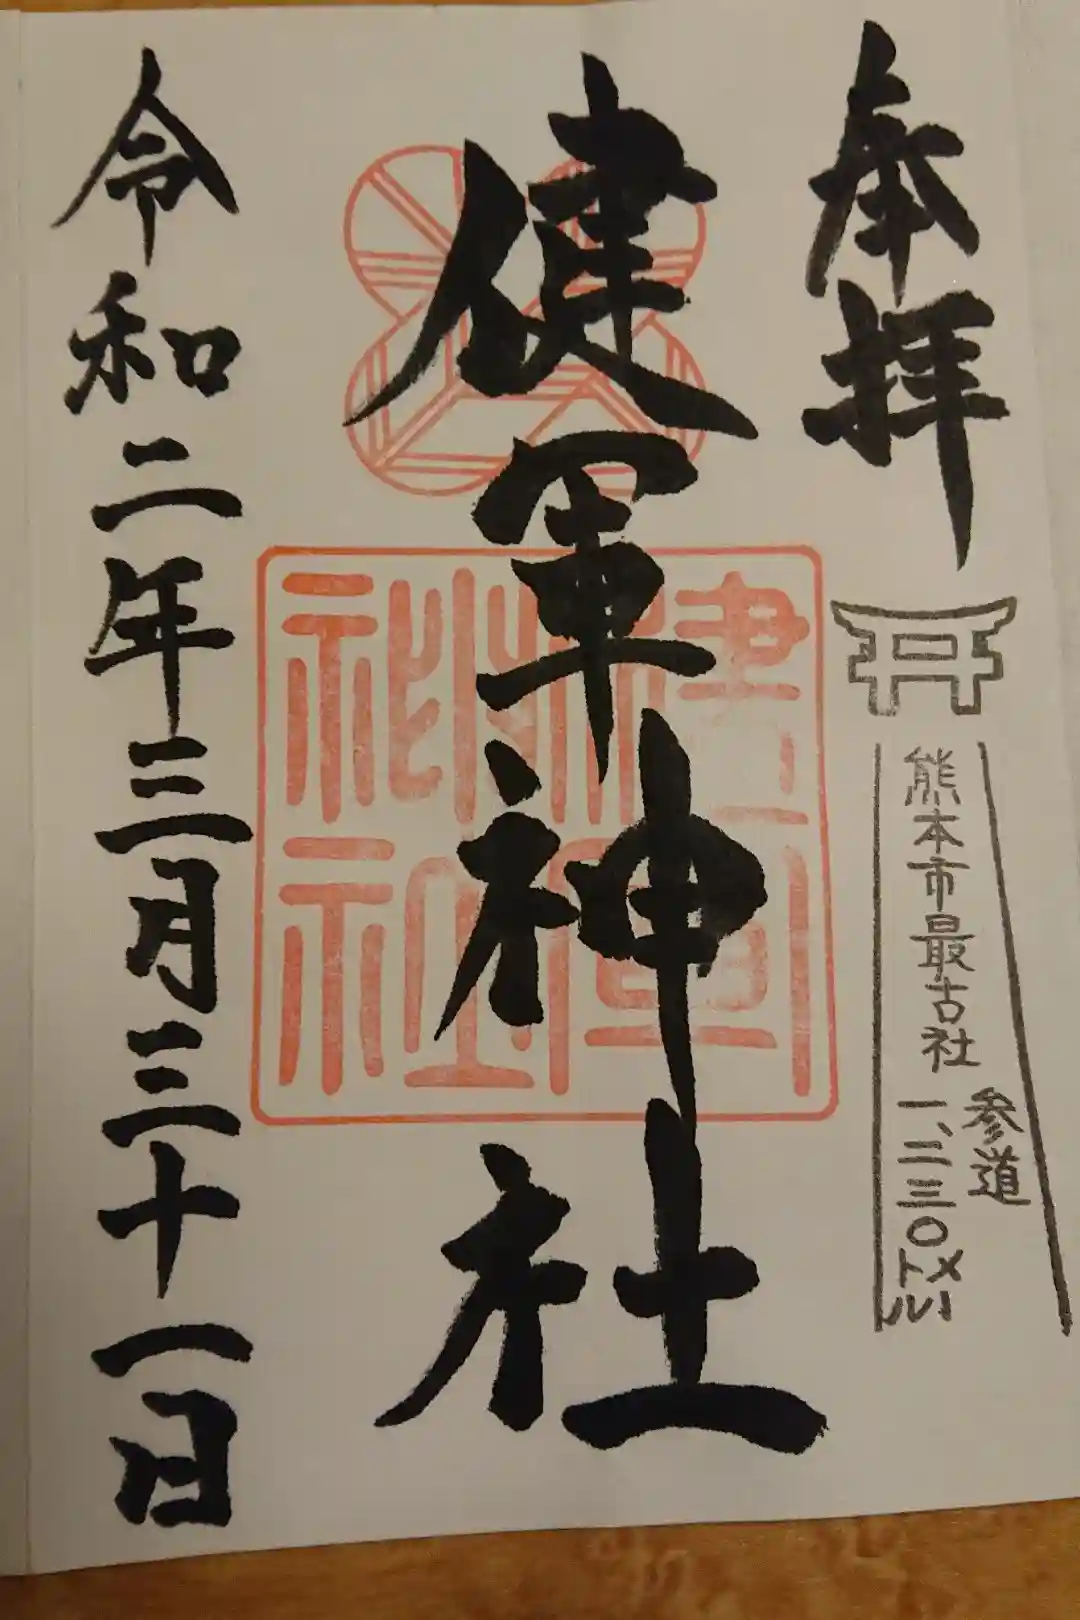 奉拝
熊本市最古社
参道
一、二三〇メートル
健軍神社
健軍
神社
令和二年三月三十一日